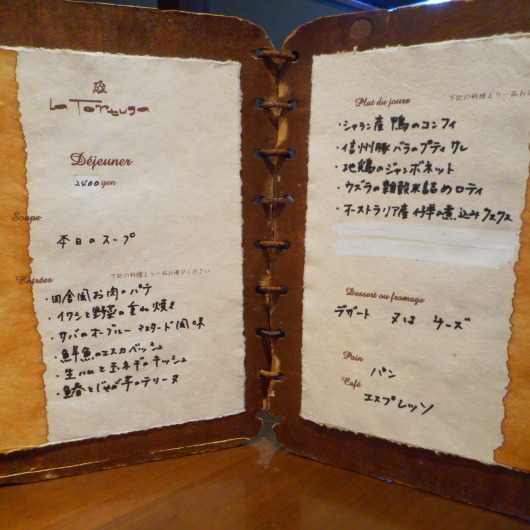 La Tortuga
Déjeuner
2400 yen
Soupe
本日のスープ
Entrées
下記の料理より一品お選びください
・田舎風お肉のパテ
・イワシと野菜の重ね焼き
・サバのオーブルー マスタード風味
・鮮魚のエスカベッシュ
・生ハムと玉ネギのキッシュ
・鰆とじゃが芋のテリーヌ
Plat du jours
下記の料理より一品お
・シャラン産 鴨のコンフィ
・信州豚バラのプティサレ
・地鶏のジャンボネット
・ウズラの雑穀米詰めロティ
・オーストラリア産 仔羊の煮込み クスクス
Dessert ou fromage
デザート 又は チーズ
Pain
パン
Café
エスプレッソ